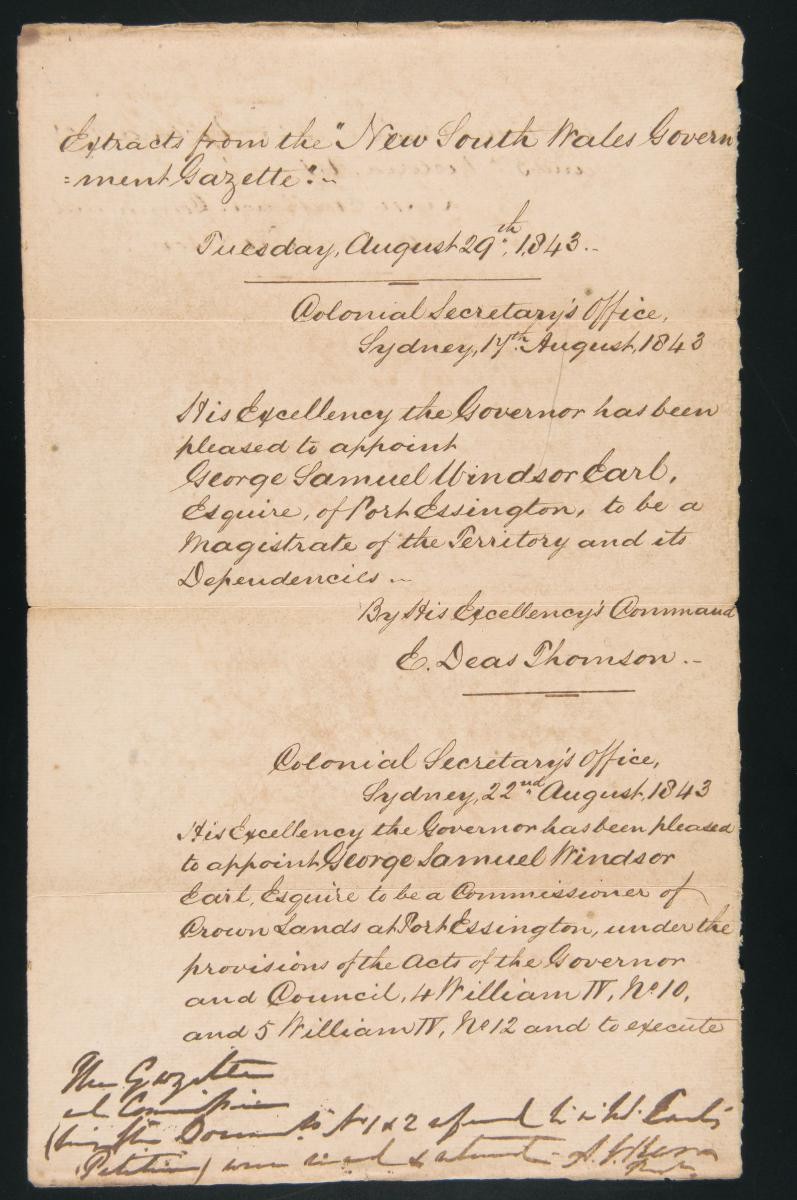 Extracts from the "New South Wales Govern
=ment Gazette".~
Tuesday, August 29th, 1843..
Colonial Secretary's Office,
Sydney, 17th August, 1843
His Excellency the Governor has been
pleased to appoint
George Samuel Windsor Earl,
Esquire, of Port Essington, to be a
Magistrate of the Territory and its
Dependencies..
By His Excellency's Command
E. Deas Thomson..
Colonial Secretary's Office,
Sydney, 22nd August, 1843
His Excellency the Governor has been pleased
to appoint George Samuel Windsor
Earl, Esquire to be a Commissioner of
Crown Lands at Port Essington, under the
provisions of the Acts of the Governor
and Council, 4 William IV, No. 10,
and 5 William IV, No 12 and to execute
The Gazette
Commission
(being the Documents No 1 & 2 Earl's
Petition) were &